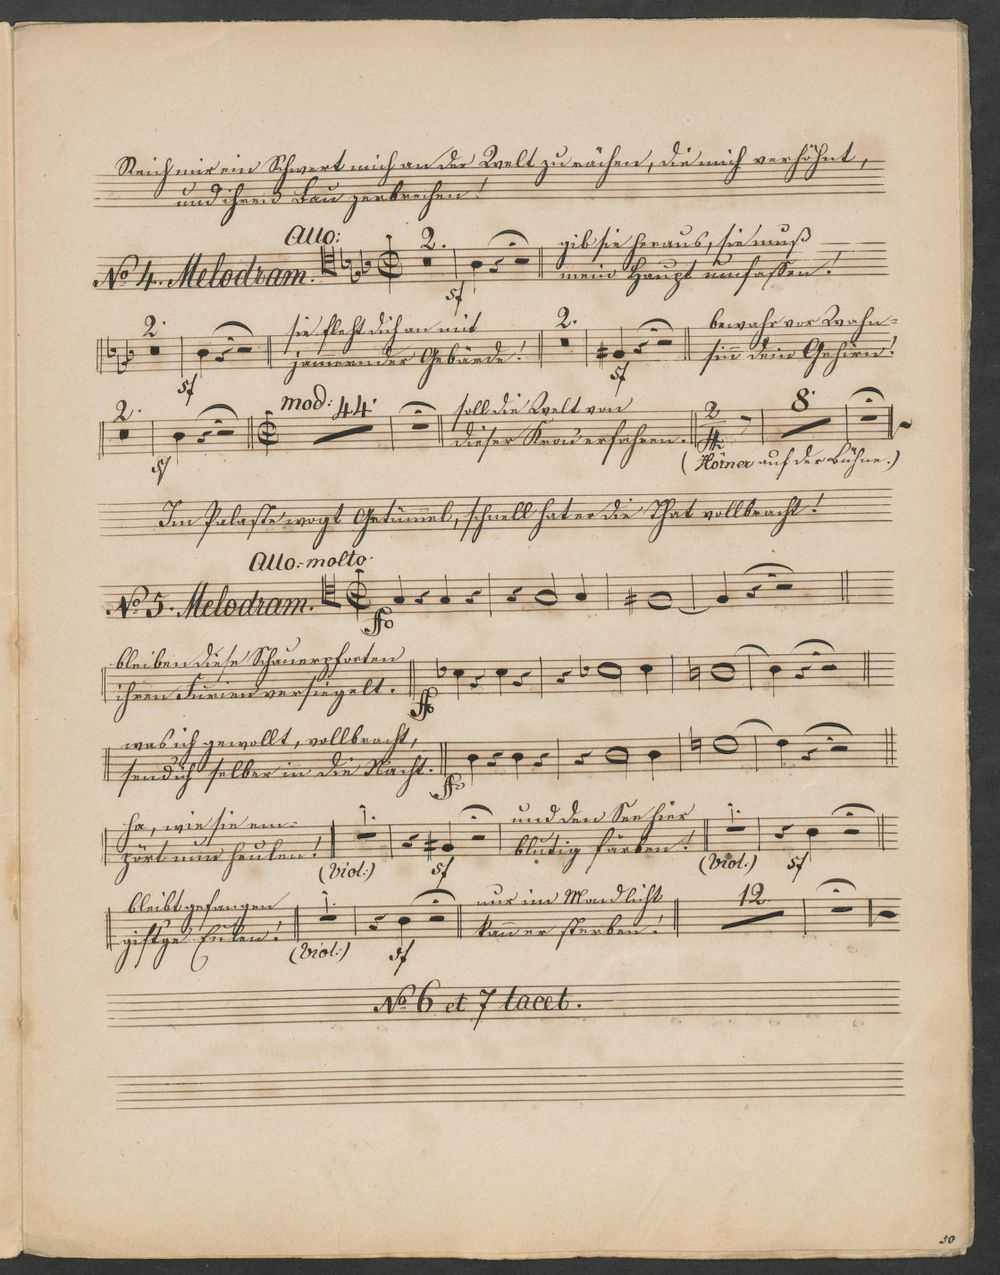 Reich mir ein Schwert mich an der Welt zu rächen, die mich verhöhnt,
und ihren Bau zerbrechen!
Allo:
No 4. Melodram.
2.
sf
gib sie heraus, sie muß
mein Haupt umfassen!
2.
sf
sie fleht dich an mit
jam̄ernder Gebärde!
2.
sf
bewahr vor Wahn=
sin̄ dein Gehirn!
2.
sf
mod:
44.
soll die Welt von
dieser Frau erfahren.
2/4
8.
(Hörner auf der Bühne.)
Im Palaste wogt Getüm̄el, schnell hat er die That vollbracht!
Allo: molto.
No 5. Melodram.
ffo
bleiben diese Schauerpforten
ihren Furien versiegelt.
ffo
was ich gewollt, vollbracht,
send ich selber in die Nacht.
ffo
ha, wie sie em=
pört nun heulen!
1.
(Viol:)
sf
und den See hier
blutig färben!
1.
(Viol:)
sf
bleibt gefangen
gift'ge Eulen!
1.
(Viol:)
sf
nur im Mondlicht
kan̄ er sterben!
12.
No 6 et 7 tacet.
50